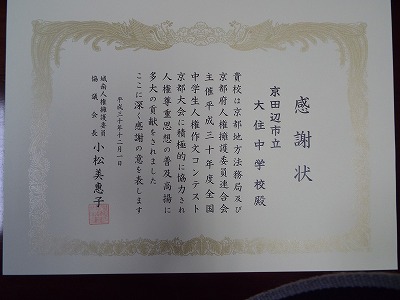 感謝状
京田辺市立
大住中学校殿
貴校は京都地方法務局及び
京都府人権擁護委員連合会
主催平成三十年度全国
中学生人権作文コンテスト
京都大会に積極的に協力され
人権尊重思想の普及高揚に
多大の貢献をされました
ここに深く感謝の意を表します
平成三十年十二月一日
城南人権擁護委員
協議会長 小松美恵子